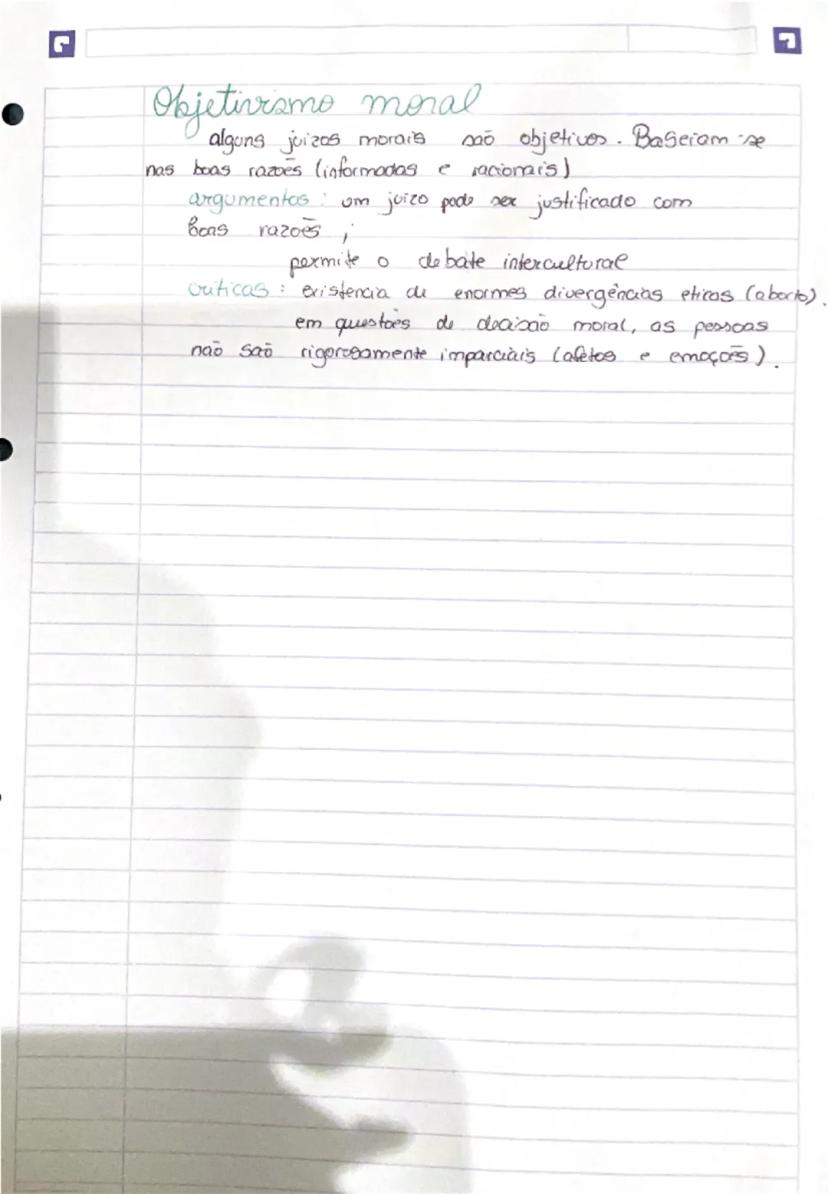 Objetivismo moral
alguns juizos morais são objetivos. Baseiam-se
nas boas razoēs (informadas e racionais)
argumentos: um juizo pode ser justificado com
boas razoēs ;
permite o debate intercultural
criticas : existencia de enormes divergências eticas (aborto).
em questoēs de decisão moral, as pessoas
não saō rigorosamente imparciais (afetos e emoçoēs).